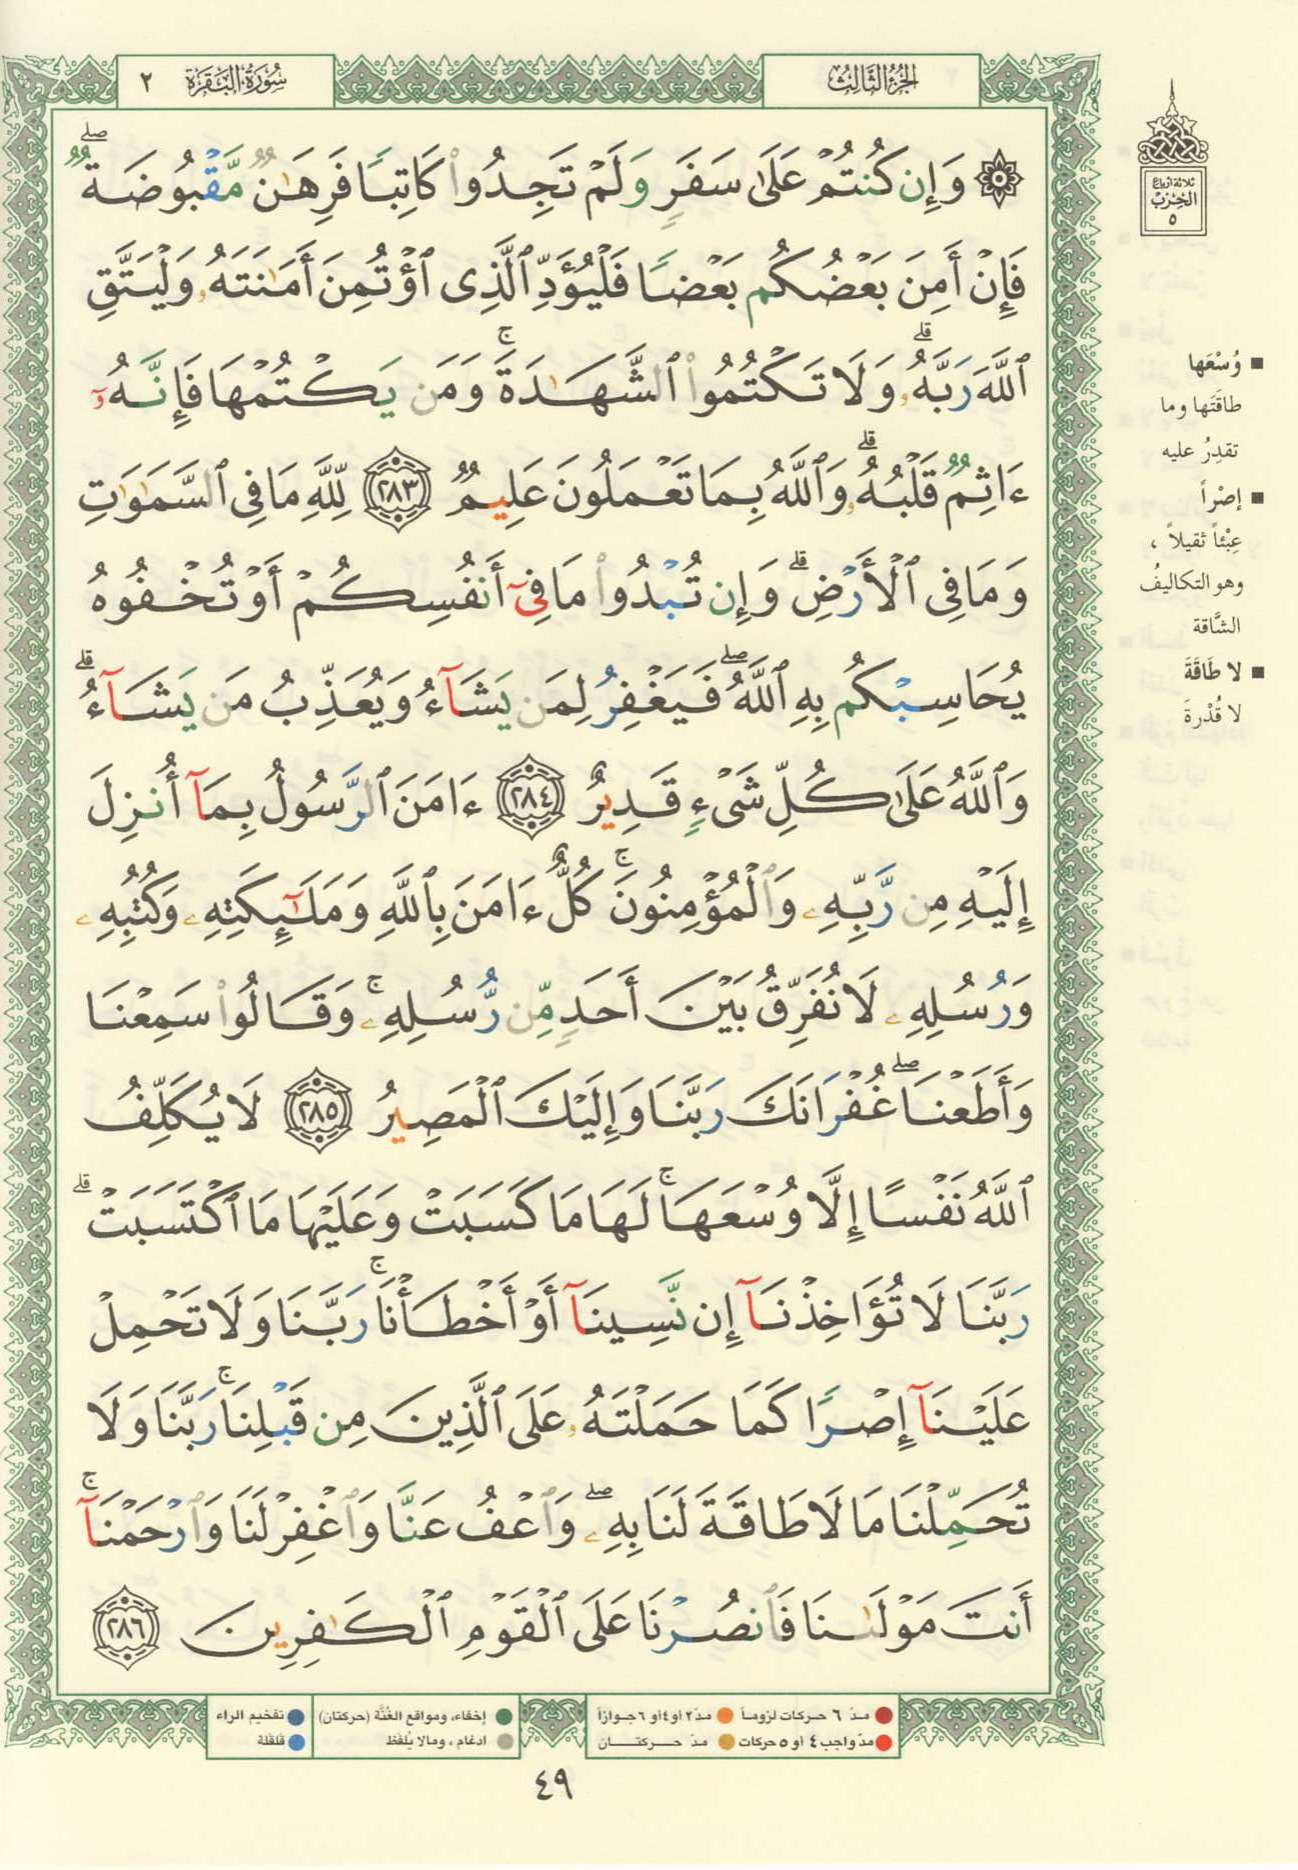 سُورَةُ البَقَرَة ٢
الجُزءُ الثَّالِثُ
۞ وَإِن كُنتُمْ عَلَىٰ سَفَرٍ وَلَمْ تَجِدُوا۟ كَاتِبًا فَرِهَـٰنٌ مَّقْبُوضَةٌ ۖ
فَإِنْ أَمِنَ بَعْضُكُم بَعْضًا فَلْيُؤَدِّ ٱلَّذِى ٱؤْتُمِنَ أَمَـٰنَتَهُۥ وَلْيَتَّقِ
ٱللَّهَ رَبَّهُۥ ۗ وَلَا تَكْتُمُوا۟ ٱلشَّهَـٰدَةَ ۚ وَمَن يَكْتُمْهَا فَإِنَّهُۥٓ
ءَاثِمٌ قَلْبُهُۥ ۗ وَٱللَّهُ بِمَا تَعْمَلُونَ عَلِيمٌ ٢٨٣ لِّلَّهِ مَا فِى ٱلسَّمَـٰوَٰتِ
وَمَا فِى ٱلْأَرْضِ ۗ وَإِن تُبْدُوا۟ مَا فِىٓ أَنفُسِكُمْ أَوْ تُخْفُوهُ
يُحَاسِبْكُم بِهِ ٱللَّهُ ۖ فَيَغْفِرُ لِمَن يَشَآءُ وَيُعَذِّبُ مَن يَشَآءُ ۗ
وَٱللَّهُ عَلَىٰ كُلِّ شَىْءٍ قَدِيرٌ ٢٨٤ ءَامَنَ ٱلرَّسُولُ بِمَآ أُنزِلَ
إِلَيْهِ مِن رَّبِّهِۦ وَٱلْمُؤْمِنُونَ ۚ كُلٌّ ءَامَنَ بِٱللَّهِ وَمَلَـٰٓئِكَتِهِۦ وَكُتُبِهِۦ
وَرُسُلِهِۦ لَا نُفَرِّقُ بَيْنَ أَحَدٍ مِّن رُّسُلِهِۦ ۚ وَقَالُوا۟ سَمِعْنَا
وَأَطَعْنَا ۖ غُفْرَانَكَ رَبَّنَا وَإِلَيْكَ ٱلْمَصِيرُ ٢٨٥ لَا يُكَلِّفُ
ٱللَّهُ نَفْسًا إِلَّا وُسْعَهَا ۚ لَهَا مَا كَسَبَتْ وَعَلَيْهَا مَا ٱكْتَسَبَتْ ۗ
رَبَّنَا لَا تُؤَاخِذْنَآ إِن نَّسِينَآ أَوْ أَخْطَأْنَا ۚ رَبَّنَا وَلَا تَحْمِلْ
عَلَيْنَآ إِصْرًا كَمَا حَمَلْتَهُۥ عَلَى ٱلَّذِينَ مِن قَبْلِنَا ۚ رَبَّنَا وَلَا
تُحَمِّلْنَا مَا لَا طَاقَةَ لَنَا بِهِۦ ۖ وَٱعْفُ عَنَّا وَٱغْفِرْ لَنَا وَٱرْحَمْنَآ ۚ
أَنتَ مَوْلَىٰنَا فَٱنصُرْنَا عَلَى ٱلْقَوْمِ ٱلْكَـٰفِرِينَ ٢٨٦
ثلاثة ارباع
الحِزبْ
٥
■ وُسْعَها
طاقَتَها وما
تقدِرُ عليه
■ إصْراً
عِبْئاً ثقيلاً ،
وهو التكاليفُ
الشَّاقة
■ لا طَاقَةَ
لا قُدْرةَ
مدّ ٦ حركات لزوماً مدّ ٢ او ٤ او ٦ جوازاً
مدّ واجب ٤ او ٥ حركات مدّ حـــركتـــان
إخفاء، ومواقع الغُنَّة (حركتان) تفخيم الراء
ادغام ، ومالا يُلفَظ قلقلة
٤٩